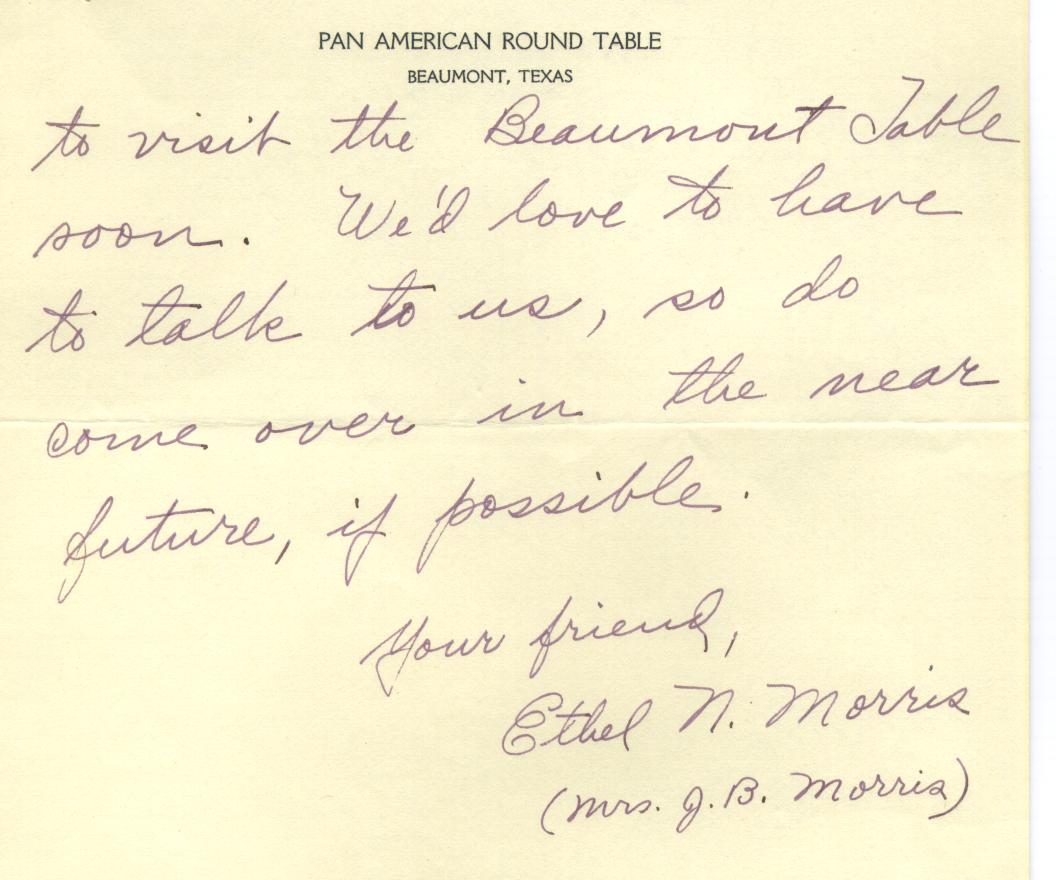 PAN AMERICAN ROUND TABLE
BEAUMONT, TEXAS
to visit the Beaumont Table
soon. We'd love to have
to talk to us, so do
come over in the near
future, if possible.
Your friend,
Ethel N. Morris
(Mrs. J.B. Morris)